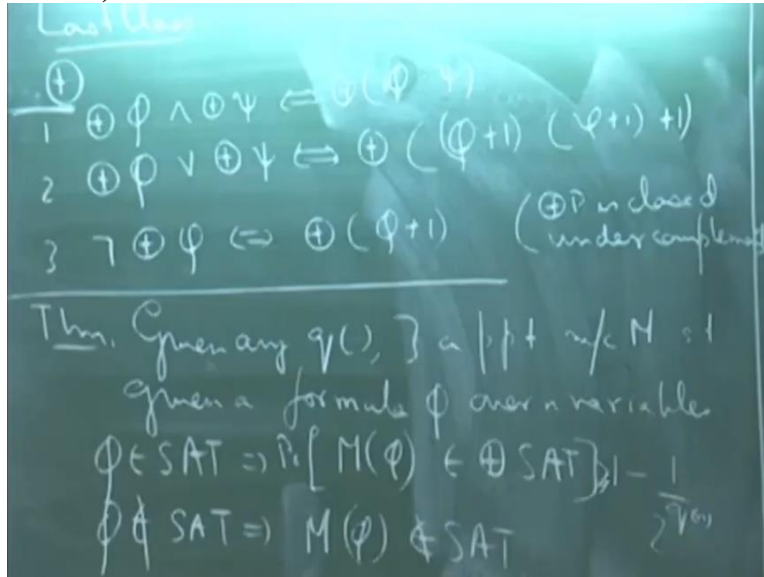 Last Class
⊕
1 ⊕ φ ∧ ⊕ ψ ⇔ ⊕ (φ ψ)
2 ⊕ φ ∨ ⊕ ψ ⇔ ⊕ ((φ+1) (ψ+1) +1)
3 ¬ ⊕ φ ⇔ ⊕ (φ+1) (⊕P is closed
under complement
Thm. Given any q(), ∃ a ppt m/c M st
given a formula φ over n variables
φ ∈ SAT ⇒ Pr[ M(φ) ∈ ⊕ SAT] ≥ 1 - 1/2^q(n)
φ ∉ SAT ⇒ M(φ) ∉ SAT